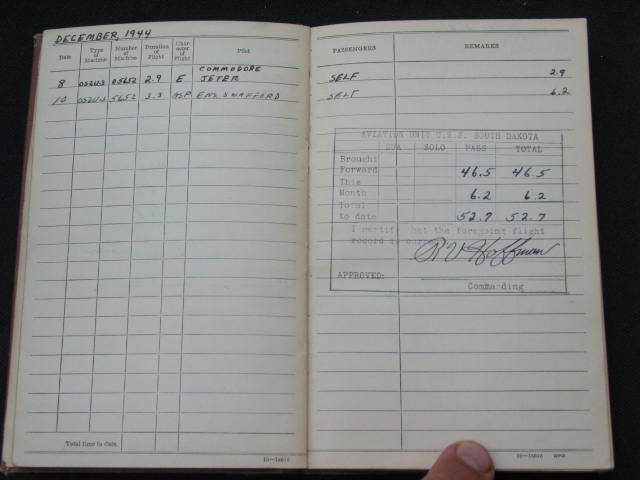 DECEMBER, 1944
Date Type of Machine Number of Machine Duration of Flight Character of Flight Pilot
COMMODORE
8 OS2U-3 05652 2.9 E JETER
10 OS2U-3 5652 3.3 ENS SWAFFORD
Total time to date,
16—14615
PASSENGERS REMARKS
SELF 2.9
SELF 6.2
AVIATION UNIT U.S.S. SOUTH DAKOTA
SOLO PASS TOTAL
Brought
Forward 46.5 46.5
This
Month 6.2 6.2
Total
to date 52.7 52.7
I certify that the foregoing flight
record is
R V Hoffman
APPROVED:
Commanding
16—14615 GPO